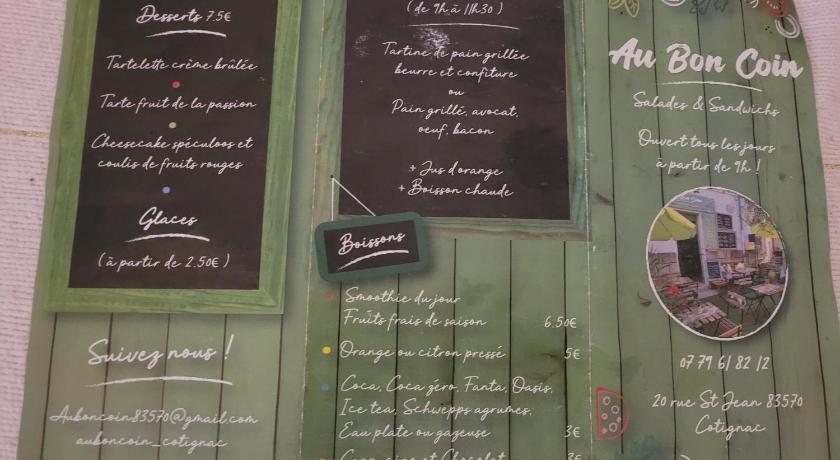 Desserts 7.5€
Tartelette crème brûlée
Tarte fruit de la passion
Cheesecake spéculoos et
coulis de fruits rouges
Glaces
(à partir de 2.50€)
Suivez nous !
Auboncoin83570@gmail.com
auboncoin_cotignac
(de 9h à 11h30)
Tartine de pain grillée
beurre et confiture
ou
Pain grillé, avocat,
oeuf, bacon
+ Jus d'orange
+ Boisson chaude
Boissons
Smoothie du jour
Fruits frais de saison 6.50€
Orange ou citron pressé 5€
Coca, Coca zéro, Fanta, Oasis,
Ice tea, Schwepps agrumes,
Eau plate ou gazeuse 3€
Au Bon Coin
Salades & Sandwichs
Ouvert tous les jours
à partir de 9h !
07 79 61 82 12
20 rue St Jean 83570
Cotignac